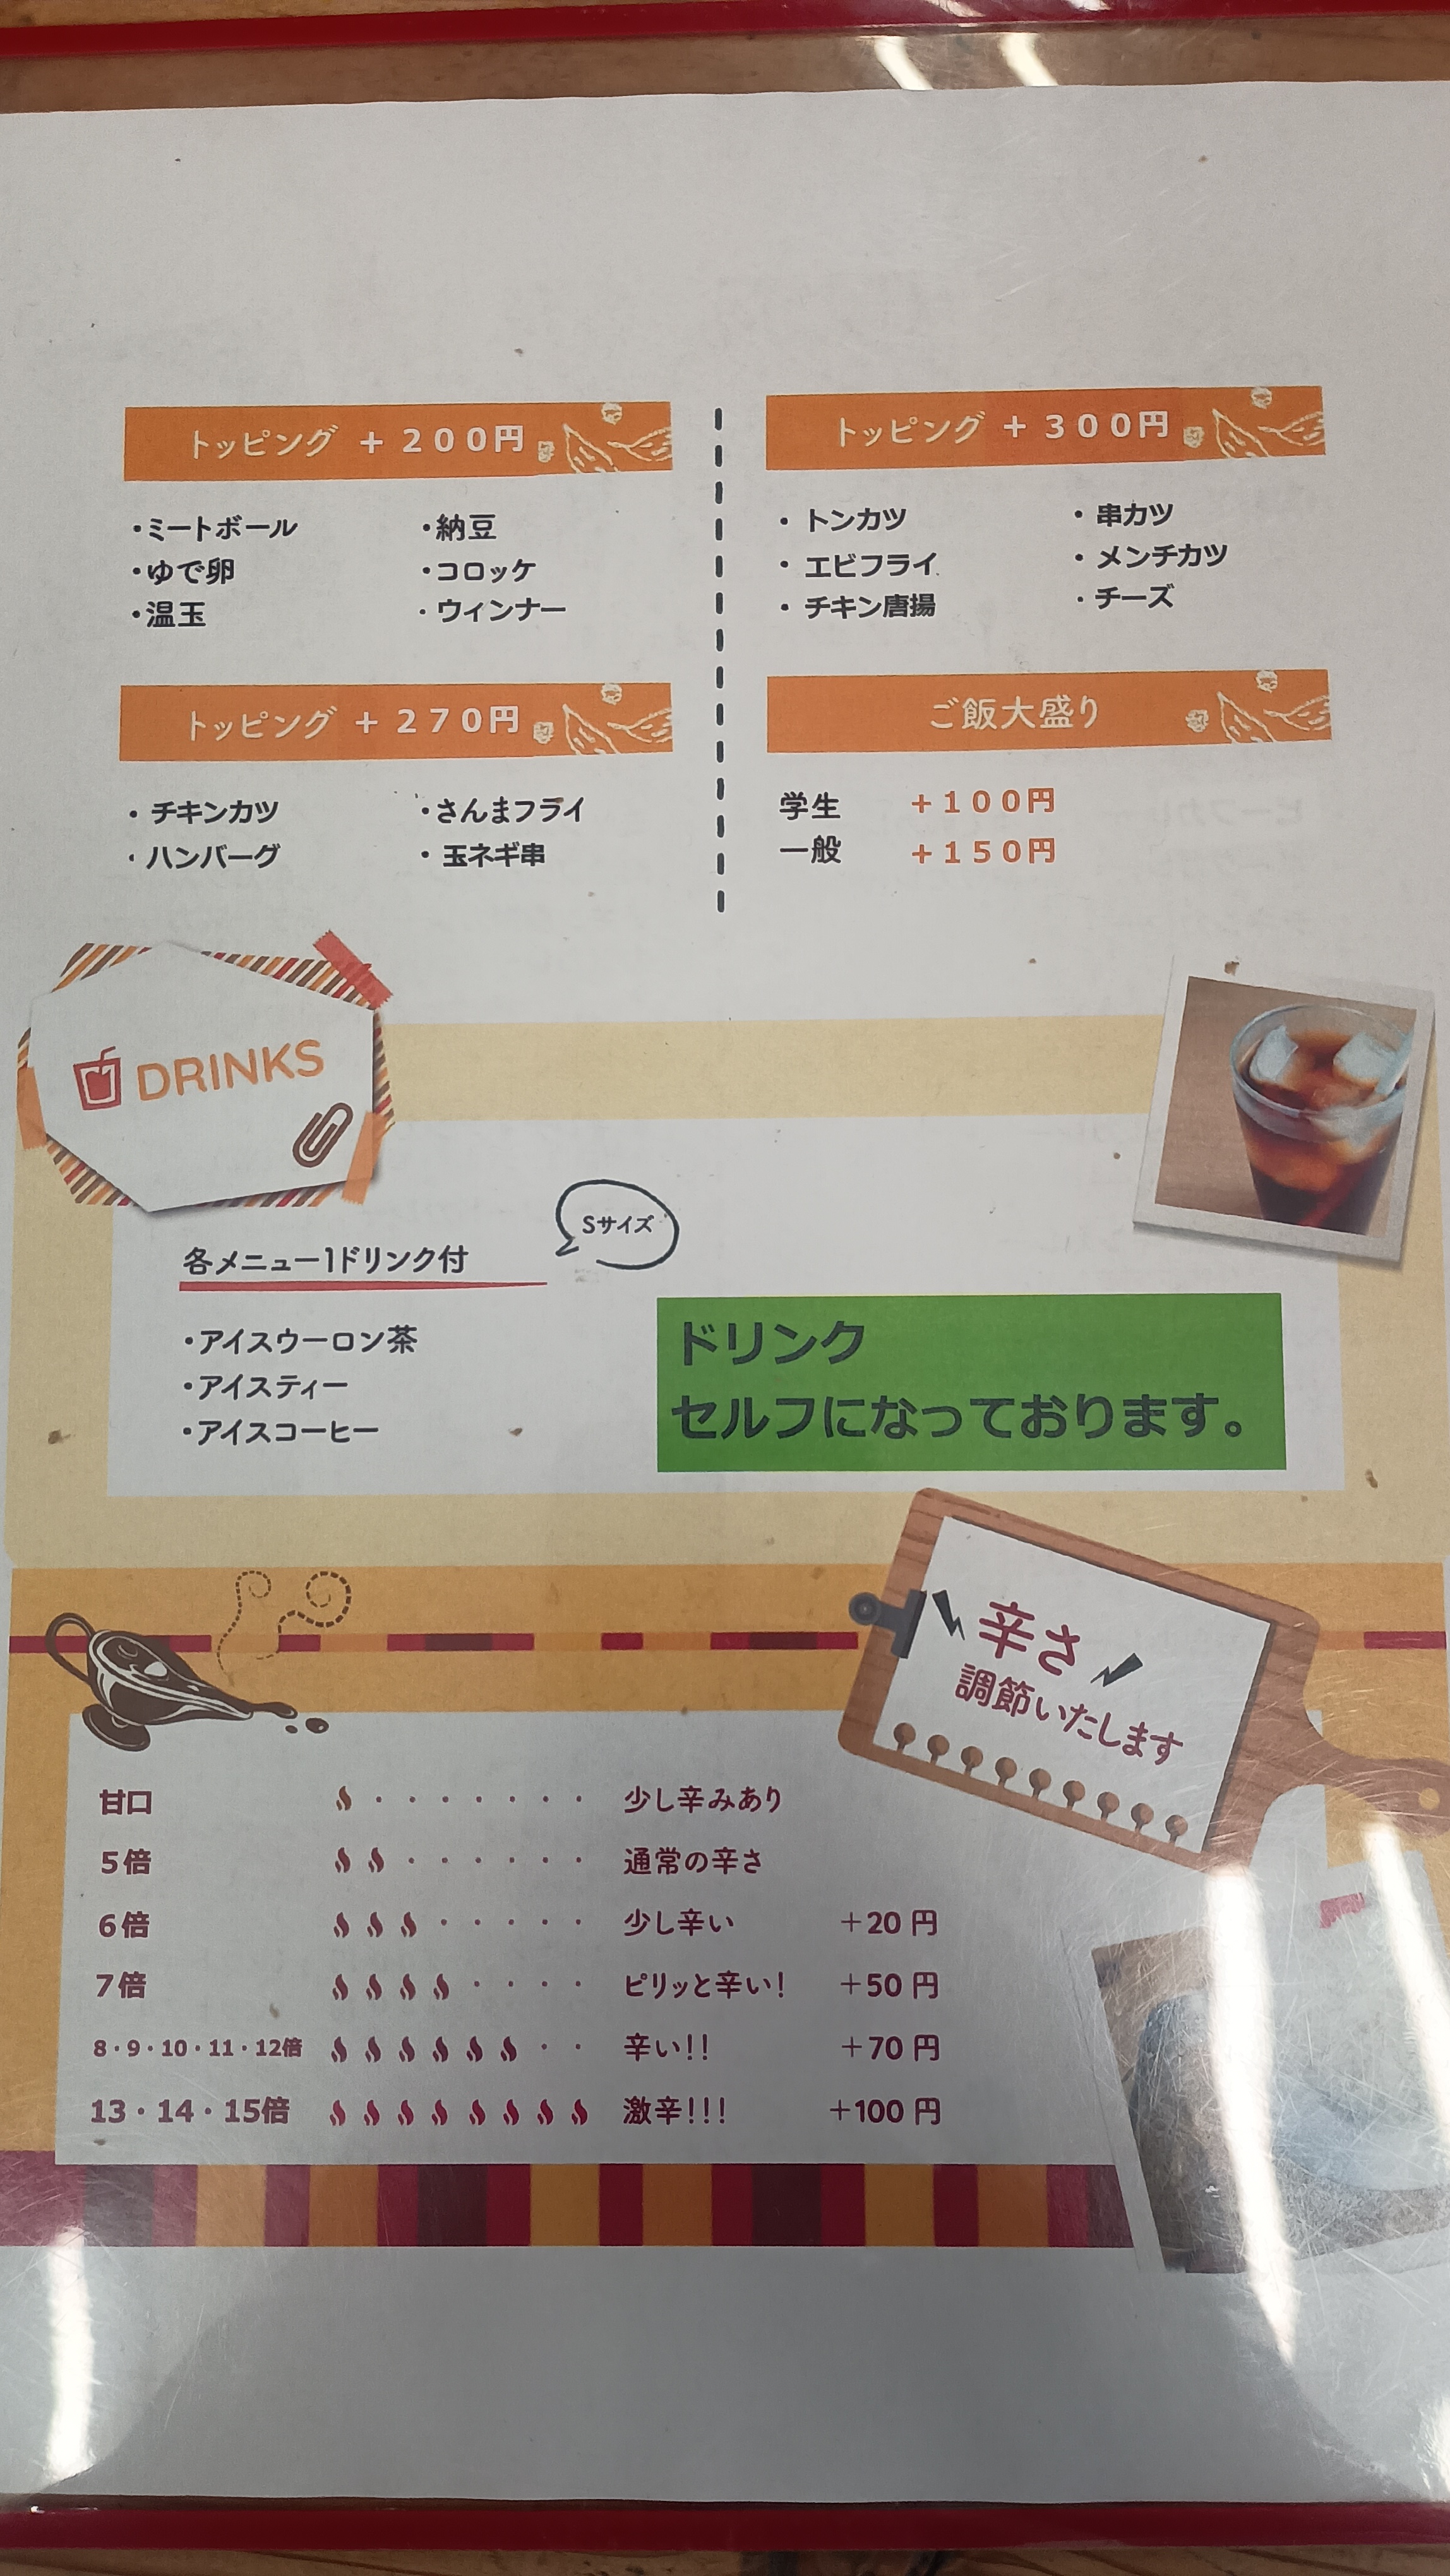 トッピング +200円
・ミートボール ・納豆
・ゆで卵 ・コロッケ
・温玉 ・ウィンナー
トッピング +270円
・チキンカツ ・さんまフライ
・ハンバーグ ・玉ネギ串
トッピング +300円
・トンカツ ・串カツ
・エビフライ ・メンチカツ
・チキン唐揚 ・チーズ
ご飯大盛り
学生 +100円
一般 +150円
DRINKS
Sサイズ
各メニュー1ドリンク付
・アイスウーロン茶
・アイスティー
・アイスコーヒー
ドリンク
セルフになっております。
辛さ
調節いたします
甘口 ・・・・・・・ 少し辛みあり
5倍 ・・・・・・ 通常の辛さ
6倍 ・・・・・ 少し辛い +20円
7倍 ・・・・ ピリッと辛い! +50円
8・9・10・11・12倍 ・・ 辛い!! +70円
13・14・15倍 激辛!!! +100円